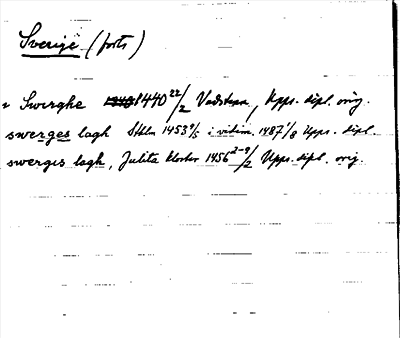 Sverige (forts)
i Swerghe 1440 22/2 Vadstena, Upps. dipl. orig.
swerges lagh Sthlm 1453 9/5 i vidim. 1487 1/8 Upps. dipl.
swerges lagh, Julita kloster 1456 2-9/2 Upps. dipl. orig.